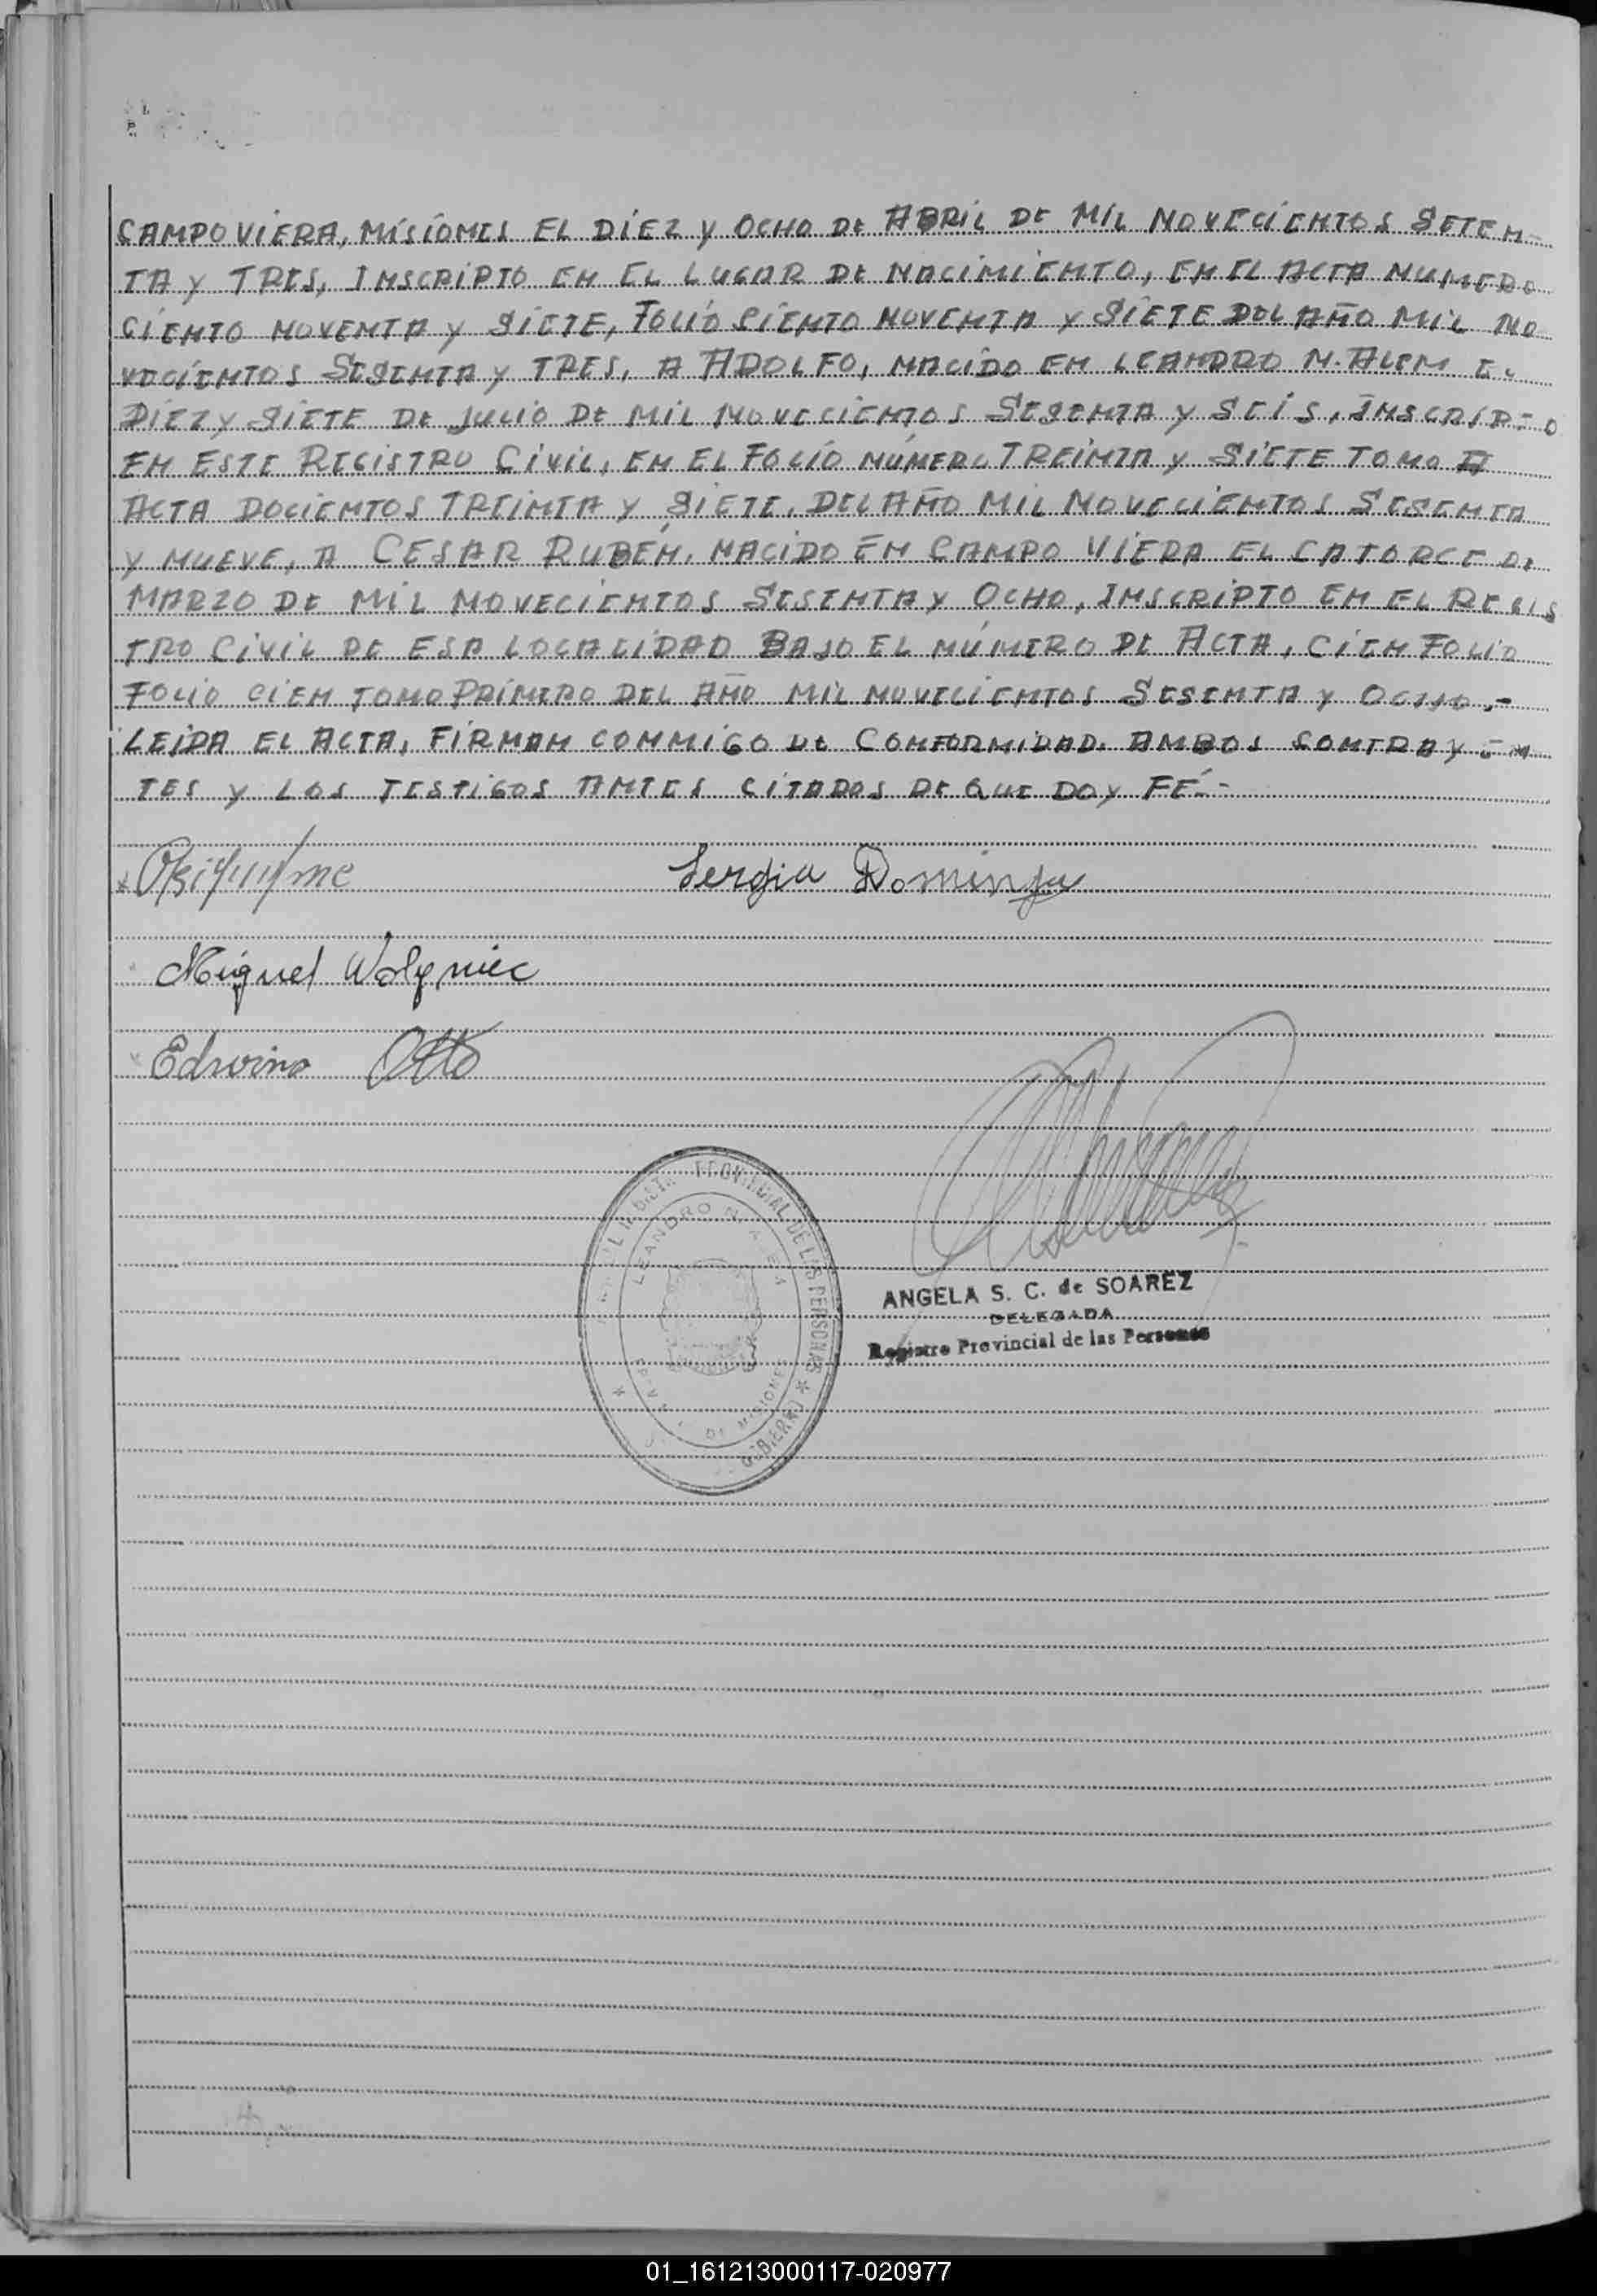 CAMPO VIERA, MISIONES EL DIEZ Y OCHO DE ABRIL DE MIL NOVECIENTOS SETEN-
TA Y TRES, INSCRIPTO EN EL LUGAR DE NACIMIENTO, EN EL ACTA NUMERO
CIENTO NOVENTA Y SIETE, FOLIO CIENTO NOVENTA Y SIETE DEL AÑO MIL NO
VECIENTOS SESENTA Y TRES, A ADOLFO, NACIDO EN LEANDRO N. ALEM EL
DIEZ Y SIETE DE JULIO DE MIL NOVECIENTOS SESENTA Y SEIS, INSCRIPTO
EN ESTE REGISTRO CIVIL, EN EL FOLIO NÚMERO TREINTA Y SIETE TOMO II
ACTA DOCIENTOS TREINTA Y SIETE, DEL AÑO MIL NOVECIENTOS SESENTA
Y NUEVE, A CESAR RUBÉN, NACIDO EN CAMPO VIERA EL CATORCE DE
MARZO DE MIL NOVECIENTOS SESENTA Y OCHO, INSCRIPTO EN EL REGIS
TRO CIVIL DE ESA LOCALIDAD BAJO EL NÚMERO DE ACTA, CIEN FOLIO
FOLIO CIEN TOMO PRIMERO DEL AÑO MIL NOVECIENTOS SESENTA Y OCHO,-
LEIDA EL ACTA, FIRMAN CONMIGO DE CONFORMIDAD. AMBOS CONTRAYEN
TES Y LOS TESTIGOS ANTES CITADOS DE QUE DOY FÉ.-
Sergia Dominga
Miguel Wolyniec
Edwino Otto
PROVINCIAL DE LAS PERSONAS * GOBIERNO
LEANDRO N. ALEM
MISIONES
ANGELA S. C. de SOAREZ
DELEGADA
Registro Provincial de las Personas
01_161213000117-020977